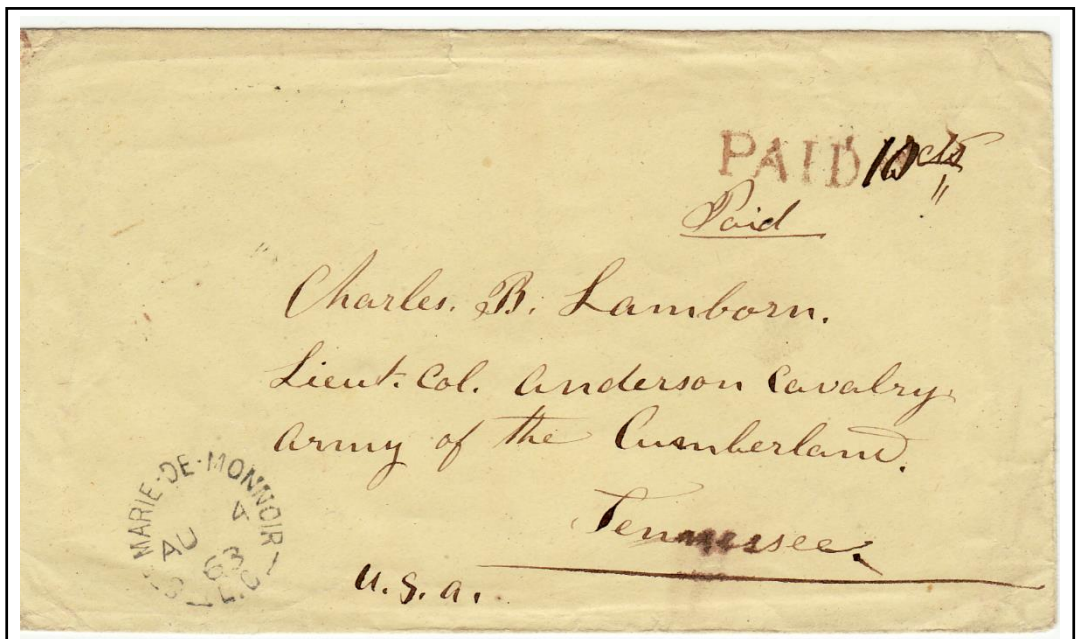 PAID 10 cts
"
Paid
Charles. B. Lamborn.
Lieut. Col. Anderson Cavalry.
Army of the Cumberland.
Tennessee.
U. S. A.
S MARIE·DE·MONNOIR L.C
AU 4
63